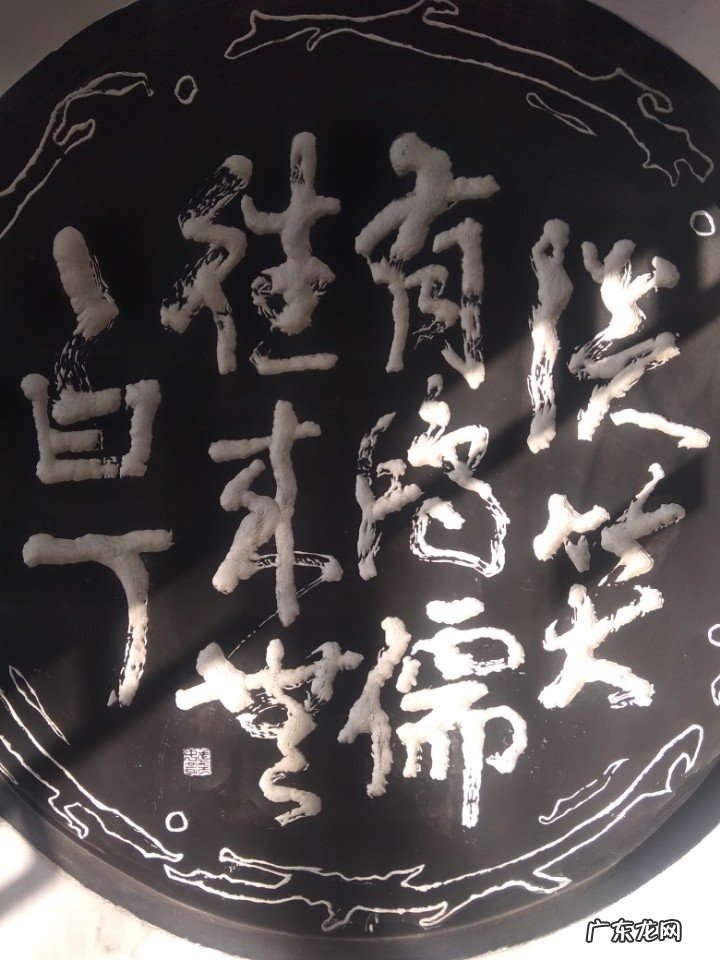 谈笑
有鸿儒
往来無
白丁
广东龙网